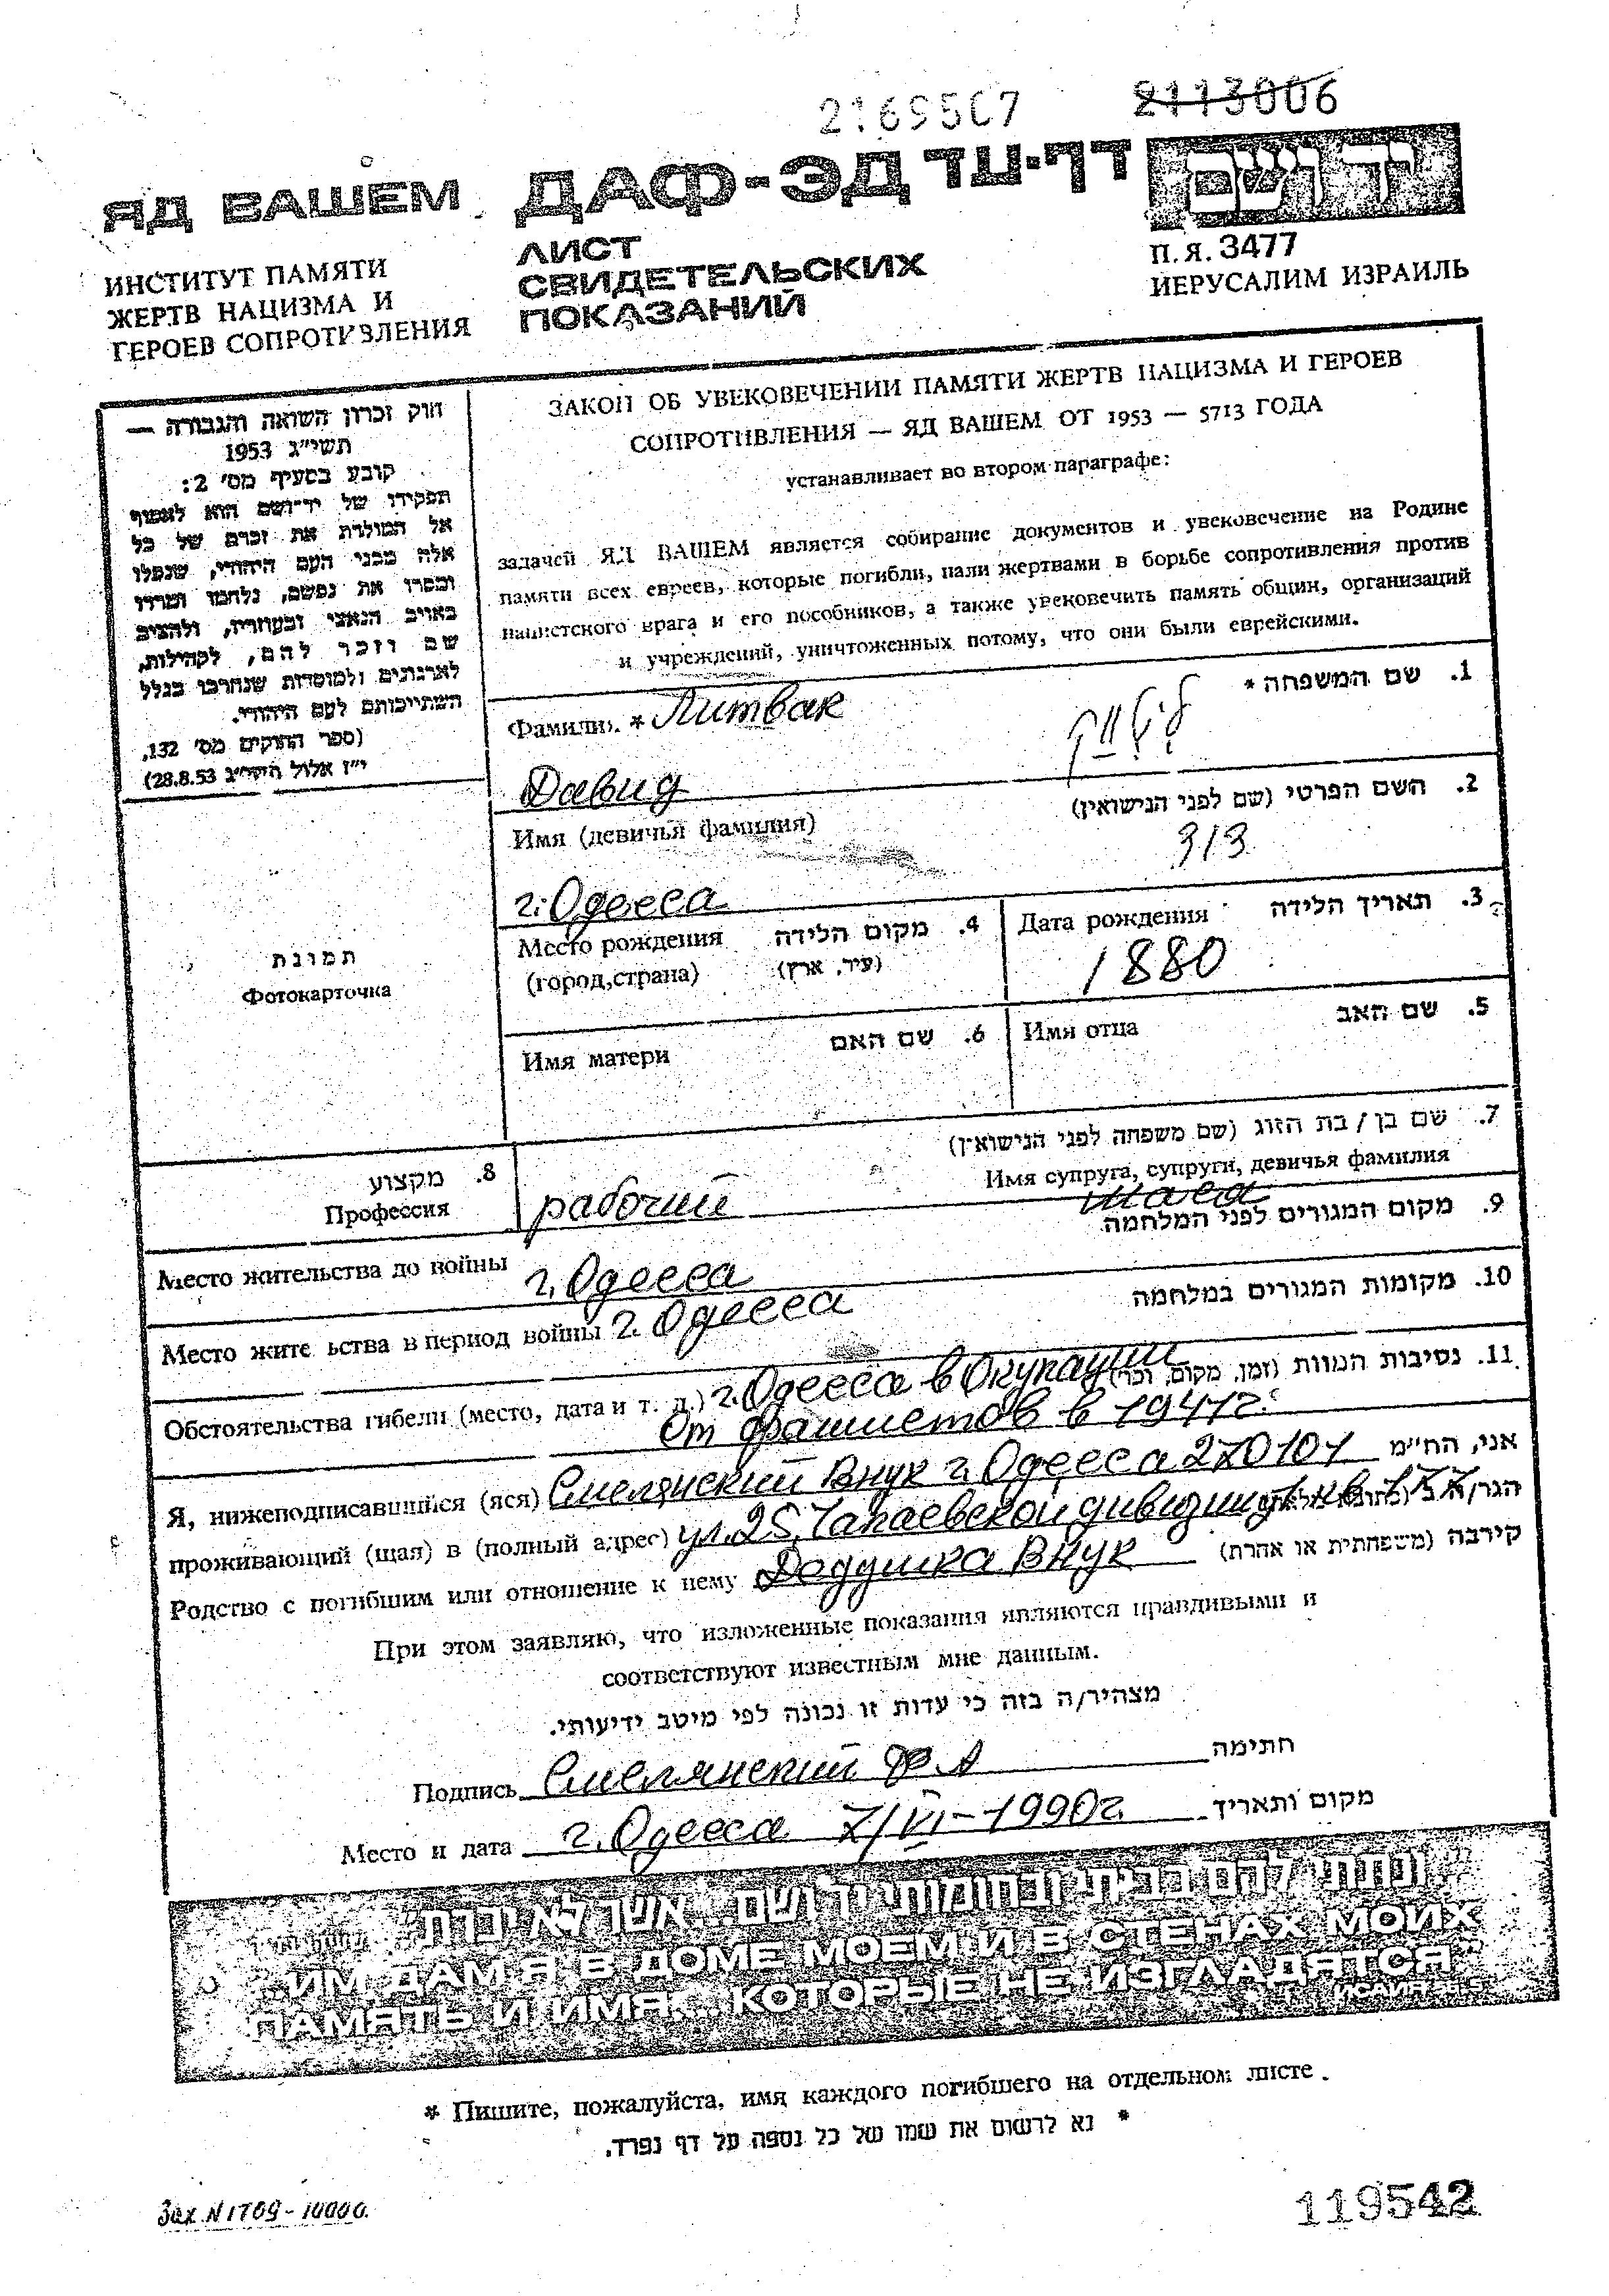 2169507 2113006
ЯД ВАШЕМ ДАФ-ЭД דף-עד יד ושם
ИНСТИТУТ ПАМЯТИ
ЖЕРТВ НАЦИЗМА И
ГЕРОЕВ СОПРОТИВЛЕНИЯ
ЛИСТ
СВИДЕТЕЛЬСКИХ
ПОКАЗАНИЙ
П.Я. 3477
ИЕРУСАЛИМ ИЗРАИЛЬ
חוק זכרון השואה והגבורה —
תשי״ג 1953
קובע בסעיף מס׳ 2:
תפקידו של יד־ושם הוא לאסוף
אל המולדת את זכרם של כל
אלה מבני העם היהודי, שנפלו
ומסרו את נפשם, נלחמו ומרדו
באויב הנאצי ובעוזריו, ולהציב
שם וזכר להם, לקהילות,
לארגונים ולמוסדות שנחרבו בגלל
השתייכותם לעם היהודי.
(ספר החוקים מס׳ 132,
י״ז אלול תשי״ג 28.8.53)
ЗАКОН ОБ УВЕКОВЕЧЕНИИ ПАМЯТИ ЖЕРТВ НАЦИЗМА И ГЕРОЕВ
СОПРОТИВЛЕНИЯ — ЯД ВАШЕМ ОТ 1953 — 5713 ГОДА
устанавливает во втором параграфе:
задачей ЯД ВАШЕМ является собирание документов и увековечение на Родине
памяти всех евреев, которые погибли, пали жертвами в борьбе сопротивления против
нацистского врага и его пособников, а также увековечить память общин, организаций
и учреждений, уничтоженных потому, что они были еврейскими.
1. שם המשפחה *
Фамилия * Литвак ליטווק
Давид
2. השם הפרטי (שם לפני הנישואין)
Имя (девичья фамилия)
דוד
г. Одесса
Место рождения 4. מקום הלידה
(город,страна) (עיר, ארץ)
Дата рождения 3. תאריך הלידה
1880
Имя матери 6. שם האם
Имя отца 5. שם האב
תמונת
Фотокарточка
7. שם בן / בת הזוג (שם משפחה לפני הנישואין)
Имя супруга, супруги, девичья фамилия
8. מקצוע
Профессия рабочий
9. מקום המגורים לפני המלחמה
Место жительства до войны г. Одесса
10. מקומות המגורים במלחמה
Место жите ьства в период войны г. Одесса
11. נסיבות המוות (זמן, מקום, וכו׳)
Обстоятельства гибели (место, дата и т. д.) г. Одесса в Окупации
От фашистов в 1941г.
Я, нижеподписавшийся (яся) Смелянский Внук г. Одесса 270101 אני, הח״מ
проживающий (щая) в (полный адрес) ул. 25, Чапаевской дивизии
Родство с погибшим или отношение к нему Деддушка Внук קירבה (משפחתית או אחרת)
При этом заявляю, что изложенные показания являются правдивыми и
соответствуют известным мне данным.
מצהיר/ה בזה כי עדות זו נכונה לפי מיטב ידיעותי.
Подпись Смелянский Ф.А חתימה
Место и дата г. Одесса 7/VI-1990г. מקום ותאריך
״ונתתי להם בביתי ובחומותי יד ושם...אשר לא יכרת״
"...ИМ ДАМ Я В ДОМЕ МОЕМ И В СТЕНАХ МОИХ
ПАМЯТЬ И ИМЯ... КОТОРЫЕ НЕ ИЗГЛАДЯТСЯ"
* Пишите, пожалуйста, имя каждого погибшего на отдельном листе.
* נא לרשום את שמו של כל נספה על דף נפרד.
Зак N 1709-10000.
119542